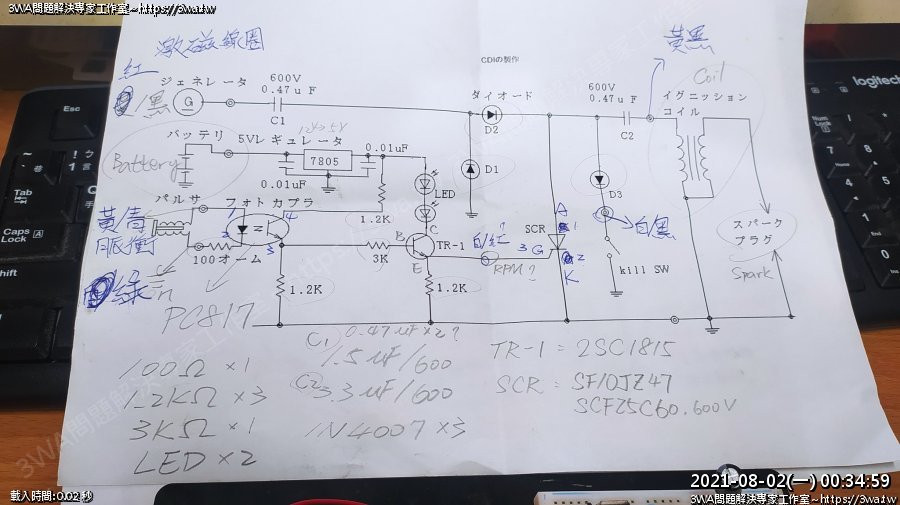 3WA問題解決專家工作室~https://3wa.tw
激磁線圈
CDIの製作
黃黑
Coil
紅
/黑
ジェネレータ
G
600V
0.47uF
C1
ダイオード
D2
600V
0.47uF
C2
イグニッション
コイル
バッテリ
Battery
5Vレギュレータ
12V→5V
7805
0.01uF
0.01uF
LED
D1
D3
白黑
パルサ
フォトカプラ
1
4
2
3
黃青
脈衝
綠
100オーム
1.2K
3K
B
C
E
TR-1
白/紅?
RPM?
A
SCR
1
3 G
2
K
kill SW
スパーク
プラグ
Spark
1.2K
1.2K
PC817
C1 0.47uF×2?
1.5uF/600
C2 3.3uF/600
1N4007×3
100Ω×1
1.2KΩ×3
3KΩ×1
LED×2
TR-1=2SC1815
SCR: SF10JZ47
SCF25C60.600V
logitech
Esc
Tab
Caps
Lock
Shift
Num
Lock
3WA問題解決專家工作室~https://3wa.tw
載入時間:0.02秒
2021-08-02(一) 00:34:59
3WA問題解決專家工作室~https://3wa.tw